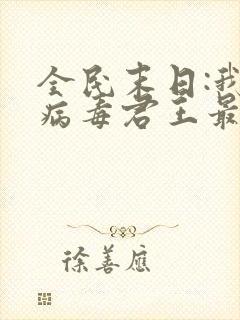 全民末日:我
病毒君王最
徐善應